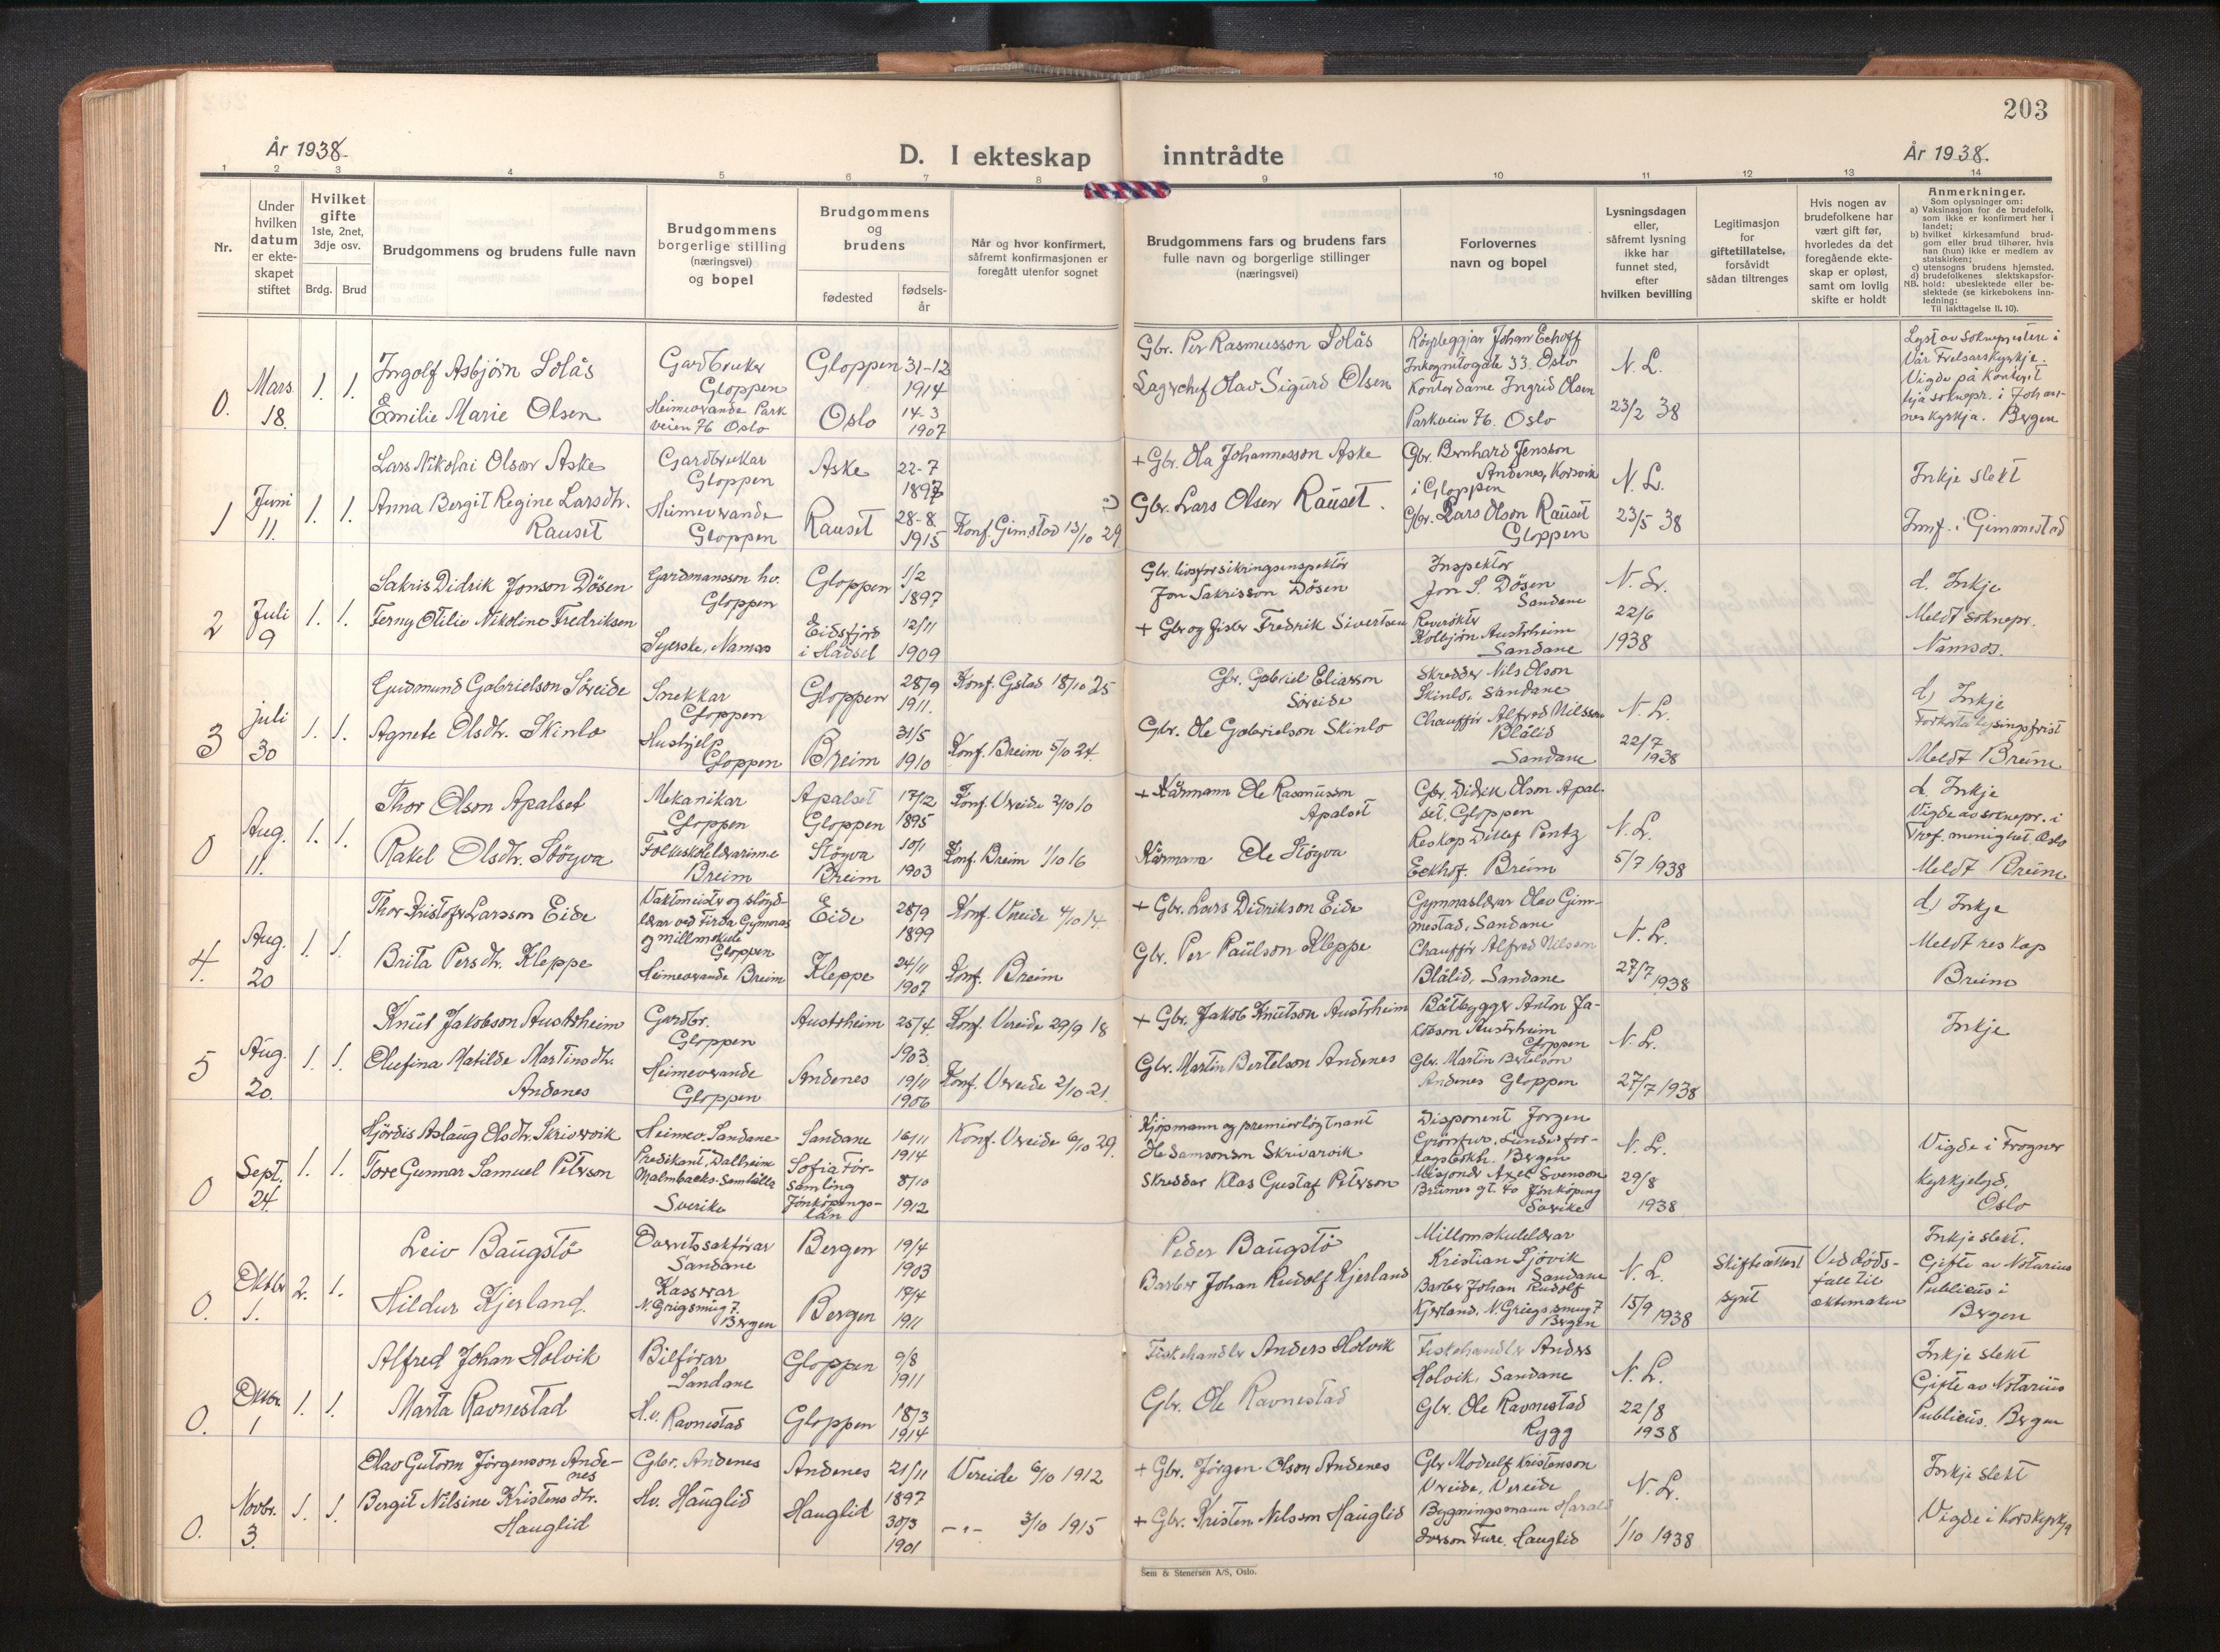 203
År 1938.
D. I ekteskap inntrådte
År 1938.
1 2 3 4 5 6 7 8 9 10 11 12 13 14
Nr.
Under hvilken datum er ekte-skapet stiftet
Hvilket gifte 1ste, 2net, 3dje osv.
Brdg. Brud
Brudgommens og brudens fulle navn
Brudgommens borgerlige stilling (næringsvei) og bopel
Brudgommens og brudens
fødested
fødsels-år
Når og hvor konfirmert, såfremt konfirmasjonen er foregått utenfor sognet
Brudgommens fars og brudens fars fulle navn og borgerlige stillinger (næringsvei)
Forlovernes navn og bopel
Lysningsdagen eller, såfremt lysning ikke har funnet sted, efter hvilken bevilling
Legitimasjon for giftetillatelse, forsåvidt sådan tiltrenges
Hvis nogen av brudefolkene har vært gift før, hvorledes da det foregående ekte-skap er opløst, samt om lovlig skifte er holdt
Anmerkninger.
Som oplysninger om:
a) Vaksinasjon for de brudefolk, som ikke er konfirmert her i landet;
b) hvilket kirkesamfund brud-gom eller brud tilhører, hvis han (hun) ikke er medlem av statskirken;
c) utensogns brudens hjemsted.
d) brudefolkenes slektskapsfor-hold: ubeslektede eller be-slektede (se kirkebokens inn-ledning:
NB.
Til iakttagelse II. 10).
0. Mars 18. 1. 1.
Ingolf Asbjørn Solås
Gardbruker Gloppen
Gloppen 31-12 1914
Gbr. Per Rasmusson Solås
Røyrleggjar Johan Eckoff
Inkognitogate 33. Oslo
& Emilie Marie Olsen
Heimeverande Park veien 76 Oslo
Oslo 14-3 1907
Lagerchef Olav Sigurd Olsen
Kontordame Ingrid Olsen
Parkvein 76. Oslo
N. L. 23/2 38
Lyst av soknepresten i
Vår Frelsarskyrkje.
Vigde på kontoret
hja soknepr. i Johan-
neskyrkja. Bergen
1 Juni 11. 1. 1.
Lars Nikolai Olson Aske
Gardbrukar Gloppen
Aske 22-7 1897
+ Gbr. Ola Johannesson Aske
Gbr. Bernhard Jensson
Andenes, Korsvik
i Gloppen
Anna Bergit Regine Larsdtr. Rauset
Heimeverande Gloppen
Rauset 28-8 1915
Konf. Gimstad 13/10 29
Gbr. Lars Olsen Rauset.
Gbr. Lars Olson Rauset
Gloppen
N. L. 23/5 38
Inkje slekt
Innf. i Gimmestad
2 Juli 9 1. 1.
Sakris Didrik Jonson Døsen
Gardmansson hv. Gloppen
Gloppen 1/2 1897
Gbr. livsforsikringsinspektør
Jon Sakrisson Døsen
Inspektør
Jon S. Døsen
Sandane
Ferny Otilie Nikoline Fredriksen
Syerske, Namsos
Eidsfjord i Hadsel 12/11 1909
+ Gbr og fisker Fredrik Sivertsen
Revrøkter
Kolbjørn Austrheim
Sandane
N. L. 22/6 1938
d. Inkje
Meldt soknepr.
Namsos.
3 juli 30 1. 1.
Gudmund Gabrielson Søreide
Snekkar Gloppen
Gloppen 28/9 1911.
Konf. Gstad 18/10 25
Gbr. Gabriel Eliasson
Søreide
Skredder Nils Olson
Skinlo, Sandane
Agnete Olsdtr. Skinlo
Hushjelp Gloppen
Breim 31/5 1910
Konf. Breim 5/10 24.
Gbr. Ole Gabrielson Skinlo
Chauffør Alfred Nilsson
Blålid
Sandane
N. L. 22/7 1938
d) Inkje
Forkorta lysingsfrist
Meldt Breim
0 Aug. 11. 1. 1.
Thor Olson Apalset
Mekanikar Gloppen
Apalset Gloppen 17/12 1895
Konf. Vereide 2/10 10
+ Kårmann Ole Rasmusson
Apalset
Gbr. Didrik Olson Apal-
set, Gloppen
Rakel Olsdtr. Støyva
Folkeskulelærarinne Breim
Støyva Breim 10/1 1903
Konf. Breim 1/10 16
Kårmann Ole Støyva
Reskap Ditlef Pentz
Eckhof. Breim
N. L. 5/7 1938
d. Inkje
Vigde av soknepr. i
Tref. menighet. Oslo
Meldt Breim
4. Aug. 20 1. 1.
Thor Kristofer Larsson Eide
Vaktmeister og sløyd-
lærar ved Firda Gymnas
og millomskule
Gloppen
Eide 28/9 1899
Konf. Vereide 4/10 14.
+ Gbr. Lars Didrikson Eide
Gymnaslærar Olav Gim-
mestad, Sandane
Brita Persdtr. Kleppe
Heimeverande Breim
Kleppe 24/11 1907
Konf. Breim
Gbr. Per Paulson Kleppe
Chauffør Alfred Nilsson
Blålid, Sandane
N. L. 27/7 1938
d) Inkje
Meldt res kap
Breim
5 Aug. 20. 1. 1.
Knut Jakobson Austrheim
Gardbr. Gloppen
Austrheim 25/4 1903.
Konf. Vereide 29/9 18
+ Gbr. Jakob Knutson Austrheim
Båtbygger Anton Ja-
kobson Austrheim
Gloppen
Olufina Matilde Martinsdtr. Andenes
Heimeverande Gloppen
Andenes 19/11 1906
Konf. Vereide 2/10 21.
Gbr. Martin Bertelson Andenes
Gbr. Martin Bertelson
Andenes Gloppen
N. L. 27/7 1938
Inkje
0 Sept. 24. 1. 1.
Hjørdis Aslaug Olsdtr. Skrivarvik
Heimev. Sandane
Sandane 16/11 1914
Konf. Vereide 6/10 29.
Kjøpmann og premierløytnant
Ole Samsonsn Skrivarvik
Disponent Jørgen
Lundes for-
Bergen
Tore Gunnar Samuel Peterson
Predikant, Dalheim
Malmbäcks-Samhälle
Sverike
Sofia För-
samling
Jönköpings-
län
8/10 1912
Skreddar Klas Gustaf Peterson
Misjonær Axel Svenson
gt. 40 Jönköping
Sverike
N. L. 29/8 1938
Vigde i Frogner
kyrkjelyd.
Oslo
0. Oktbr 1. 2. 1.
Leiv Baugstø
Overrettssakførar Sandane
Bergen 19/4 1903
Peder Baugstø
Millomskulelærar
Kristian Sjøvik
Sandane
Hildur Kjerland.
Kasserar
N. Griegsmug 7.
Bergen
Bergen 17/4 1911
Barber Johan Rudolf Kjerland
Barber Johan Rudolf
Kjerland. N. Griegs smug 7
Bergen
N. L. 15/9 1938
Skifteattest
synt
Ved døds-
fall til
ektemaken
Inkje slekt.
Gifte av Notarius
Publicus i
Bergen
0. Oktbr. 1 1. 1.
Alfred Johan Holvik
Bilførar Sandane
Gloppen 9/8 1911
Fiskehandler Anders Holvik
Fiskehandler Anders
Holvik, Sandane
Marta Ravnestad
H.v. Ravnestad
Gloppen 18/3 1914
Gbr. Ole Ravnestad
Gbr. Ole Ravnestad
Rygg
N. L. 22/8 1938
Inkje slekt
Gifte av Notarius
Publicus. Bergen
0. Novbr. 3. 1. 1.
Olav Gutorm Jørgenson Ande-
nes
Gbr. Andenes
Andenes 21/11 1897
Vereide 6/10 1912
+ Gbr. Jørgen Olson Andenes
Gbr Modulf Kristenson
Vereide, Vereide
Bergit Nilsine Kristensdtr.
Hauglid
Hv. Hauglid
Hauglid 30/3 1901
-"- 3/10 1915
+ Gbr. Kristen Nilsson Hauglid
Bygningsmann Harald
Iverson Fure. Hauglid
N. L. 1/10 1938
Inkje slekt
Vigde i Korskyrkja
Sem & Stenersen A/S, Oslo.